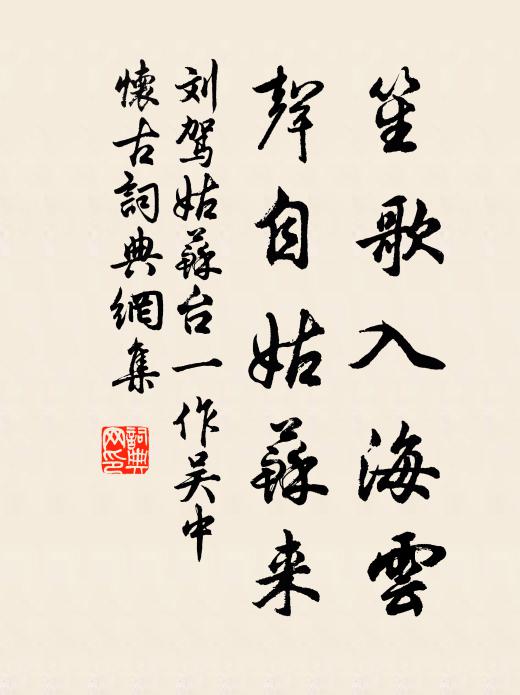 笙歌入海雲
聲自姑蘇来
刘驾姑蘇台一作吴中
懷古詞典網集
詞典
网印